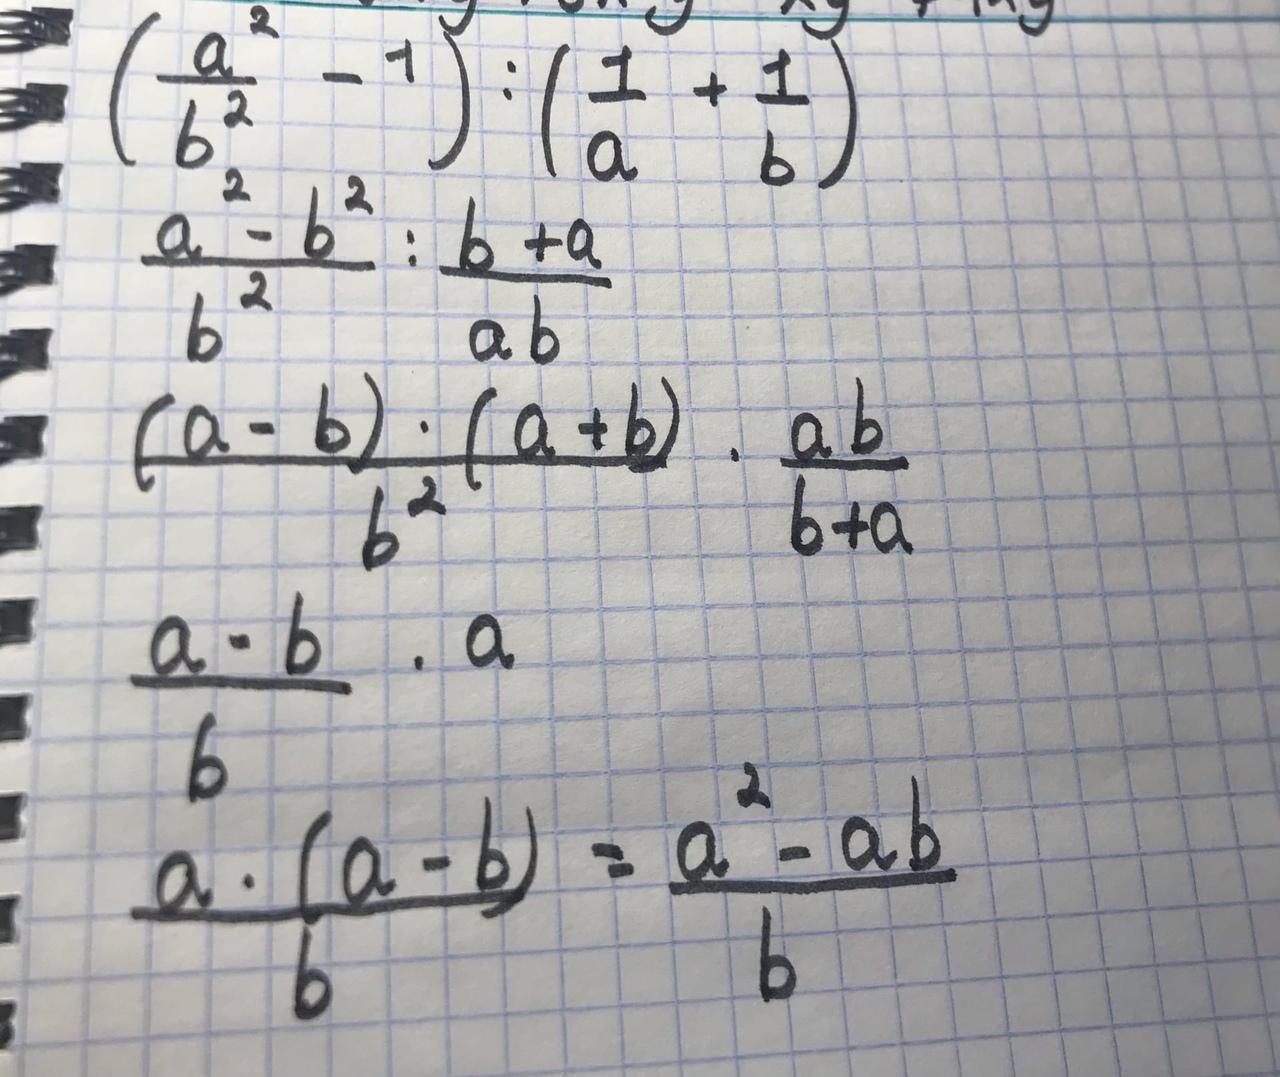 (a²/b² - 1) : (1/a + 1/b)
a² - b²/b² : b + a/ab
(a - b) · (a + b)/b² · ab/b + a
a - b/b · a
a · (a - b)/b = a² - ab/b